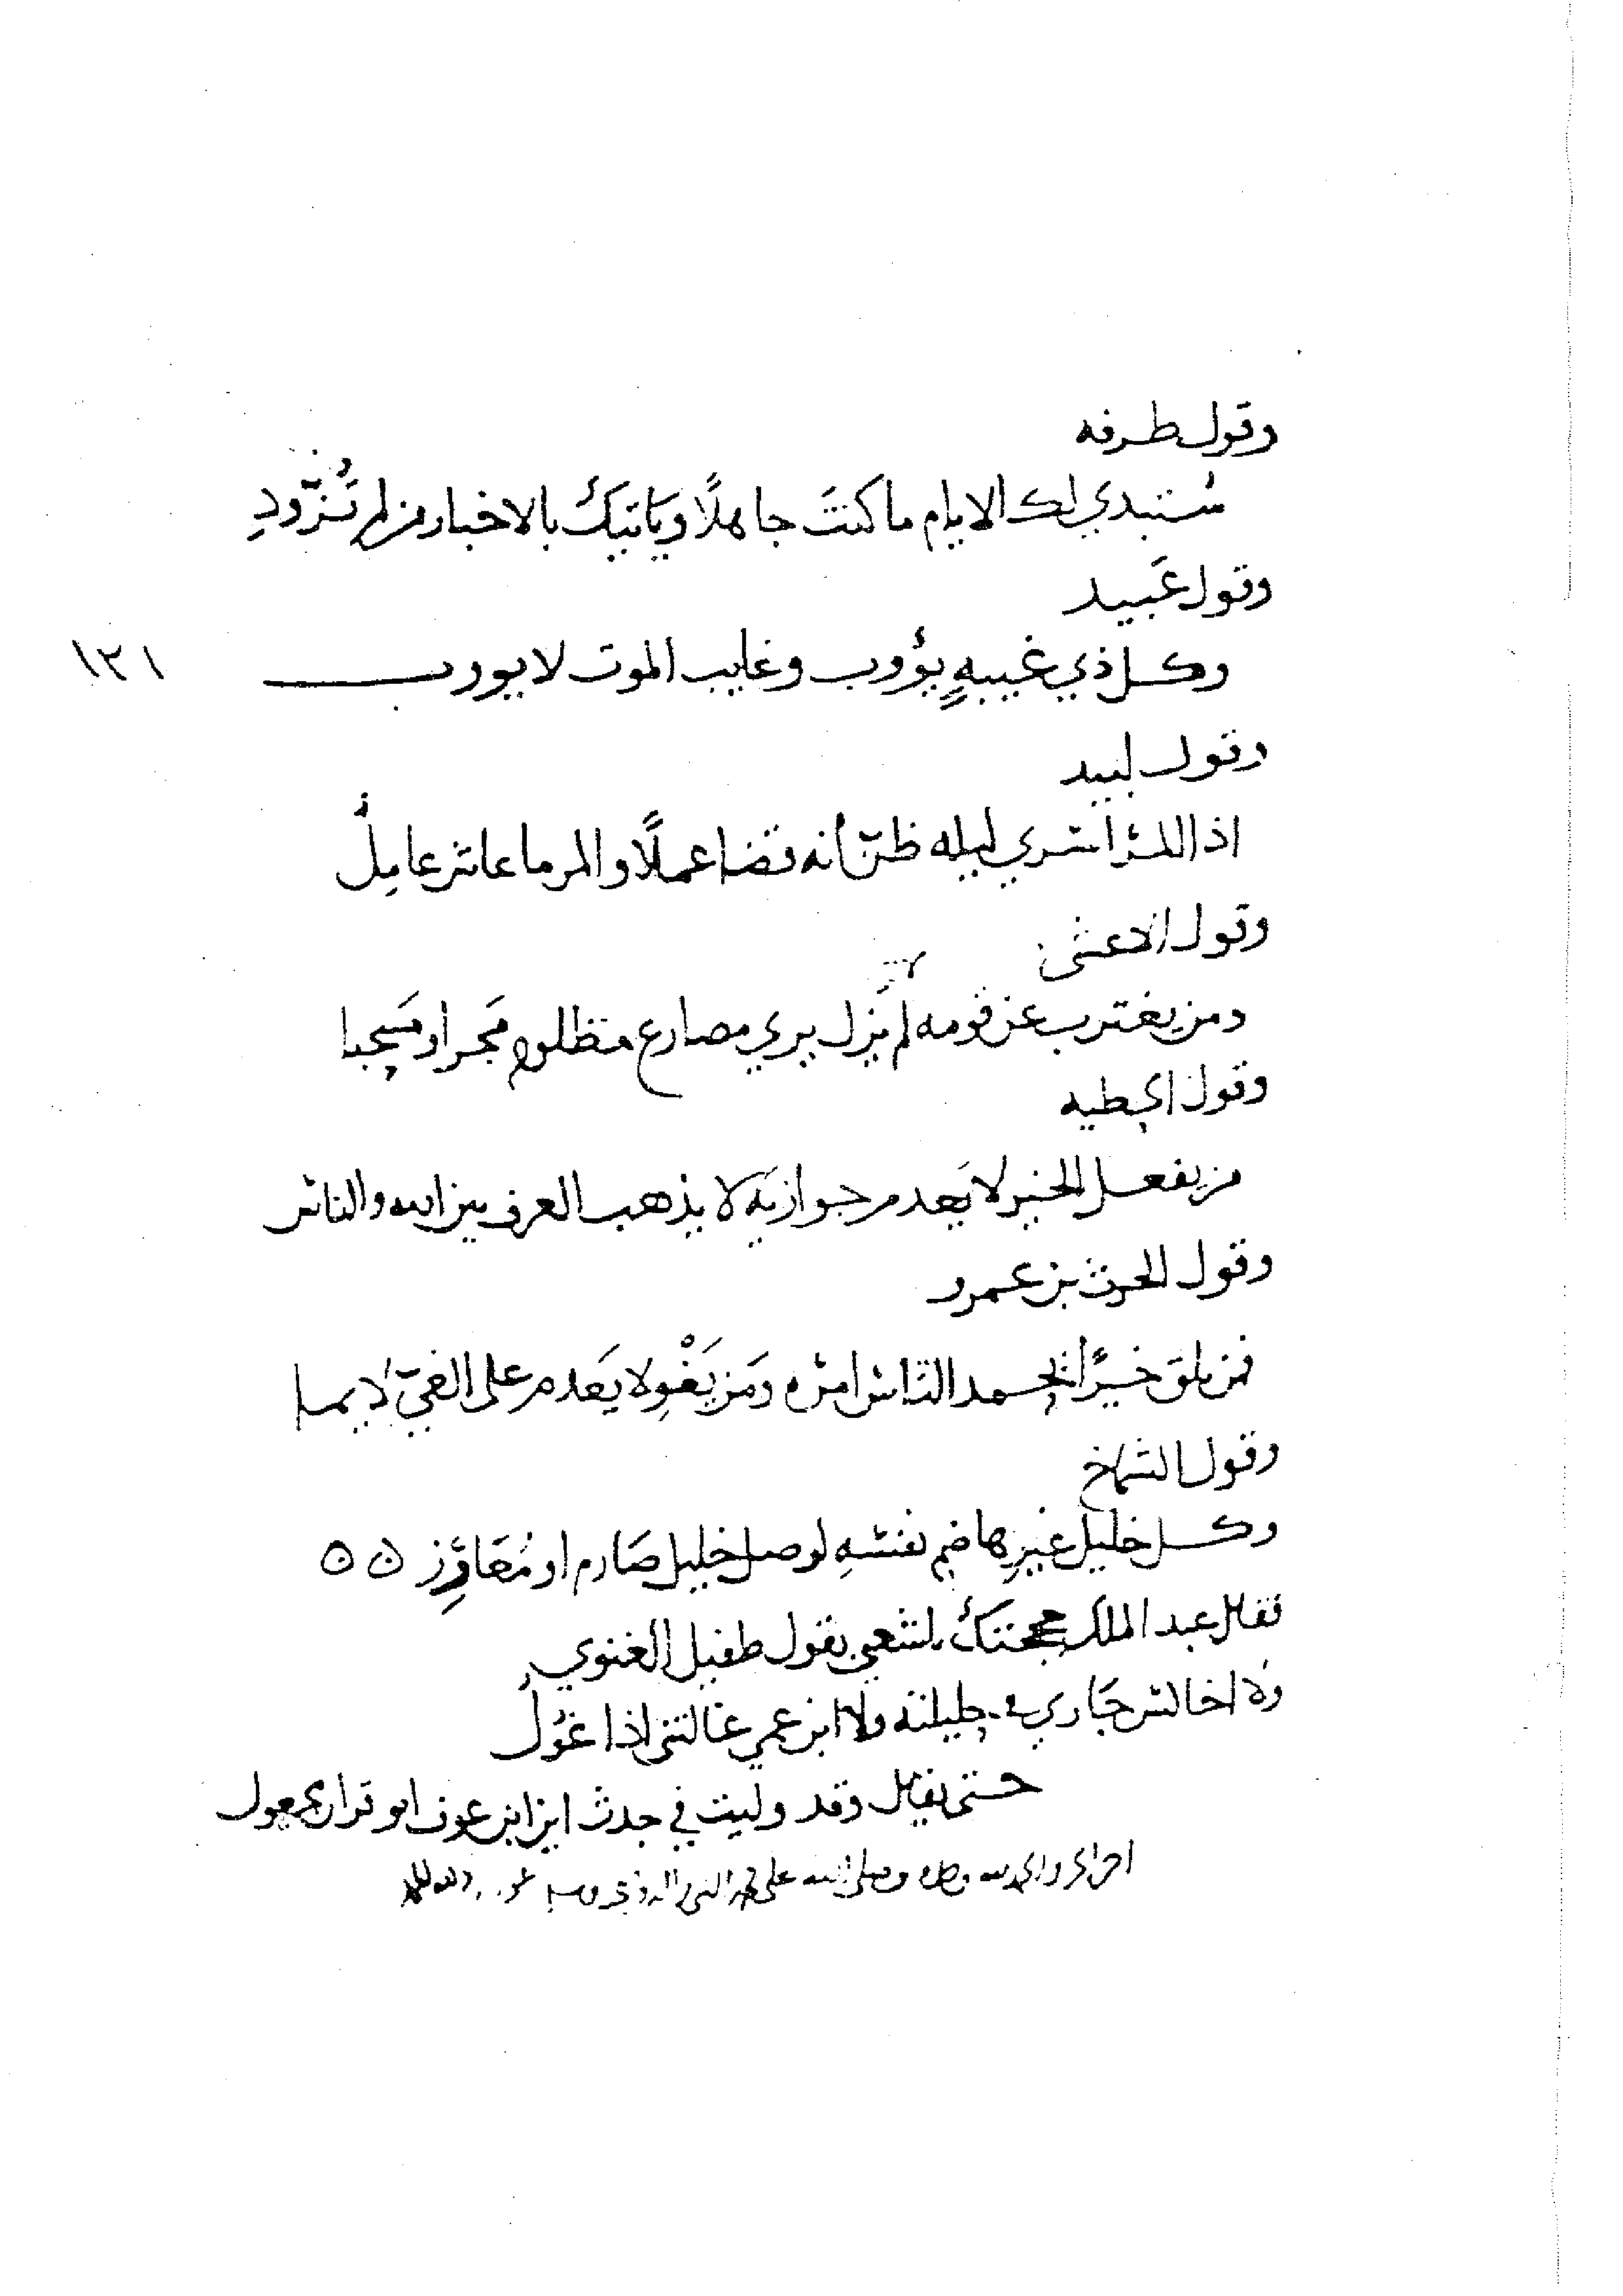 وقول طرفه
ستبدي لك الايام ما كنتَ جاهلًا وياتيكَ بالاخبار من لم تُزَوّدِ
وقول عَبيد
وكل ذي غيبهٍ يؤوب وغايب الموت لا يووب
١٢١
وقول لبيد
اذا المرُ اسري ليله ظنّ أنه قضا عملًا والمر ما عاش عامِلُ
وقول الاعشى
ومن يغترب عن قومه لم يَزل يري مصارع مظلوم مَجرا ومَسحبا
وقول الحطيه
من يفعل الخير لا يَعدم جوازيَه لا يذهب العرف بين الله والناس
وقول الحرث بن عمرو
فمن يلقَ خيرًا يحمد النّاسُ امرَه ومَن يَغْوِ لا يَعدم على الغيّ لايما
وقول الشماخ
وكل خليل غيرِ هاضم نفسهِ لوصل خليل صَارم او مُعَاوِز
فقال عبد الملك حججتكَ يا شعبي بقول طفيل الغنوي
ولا اخالس جَاري في حليلته ولا ابن عمي غالتني اذا غُولُ
حتى يقال وقد وليت في جدث اين ابن عوف ابو قران مجعول